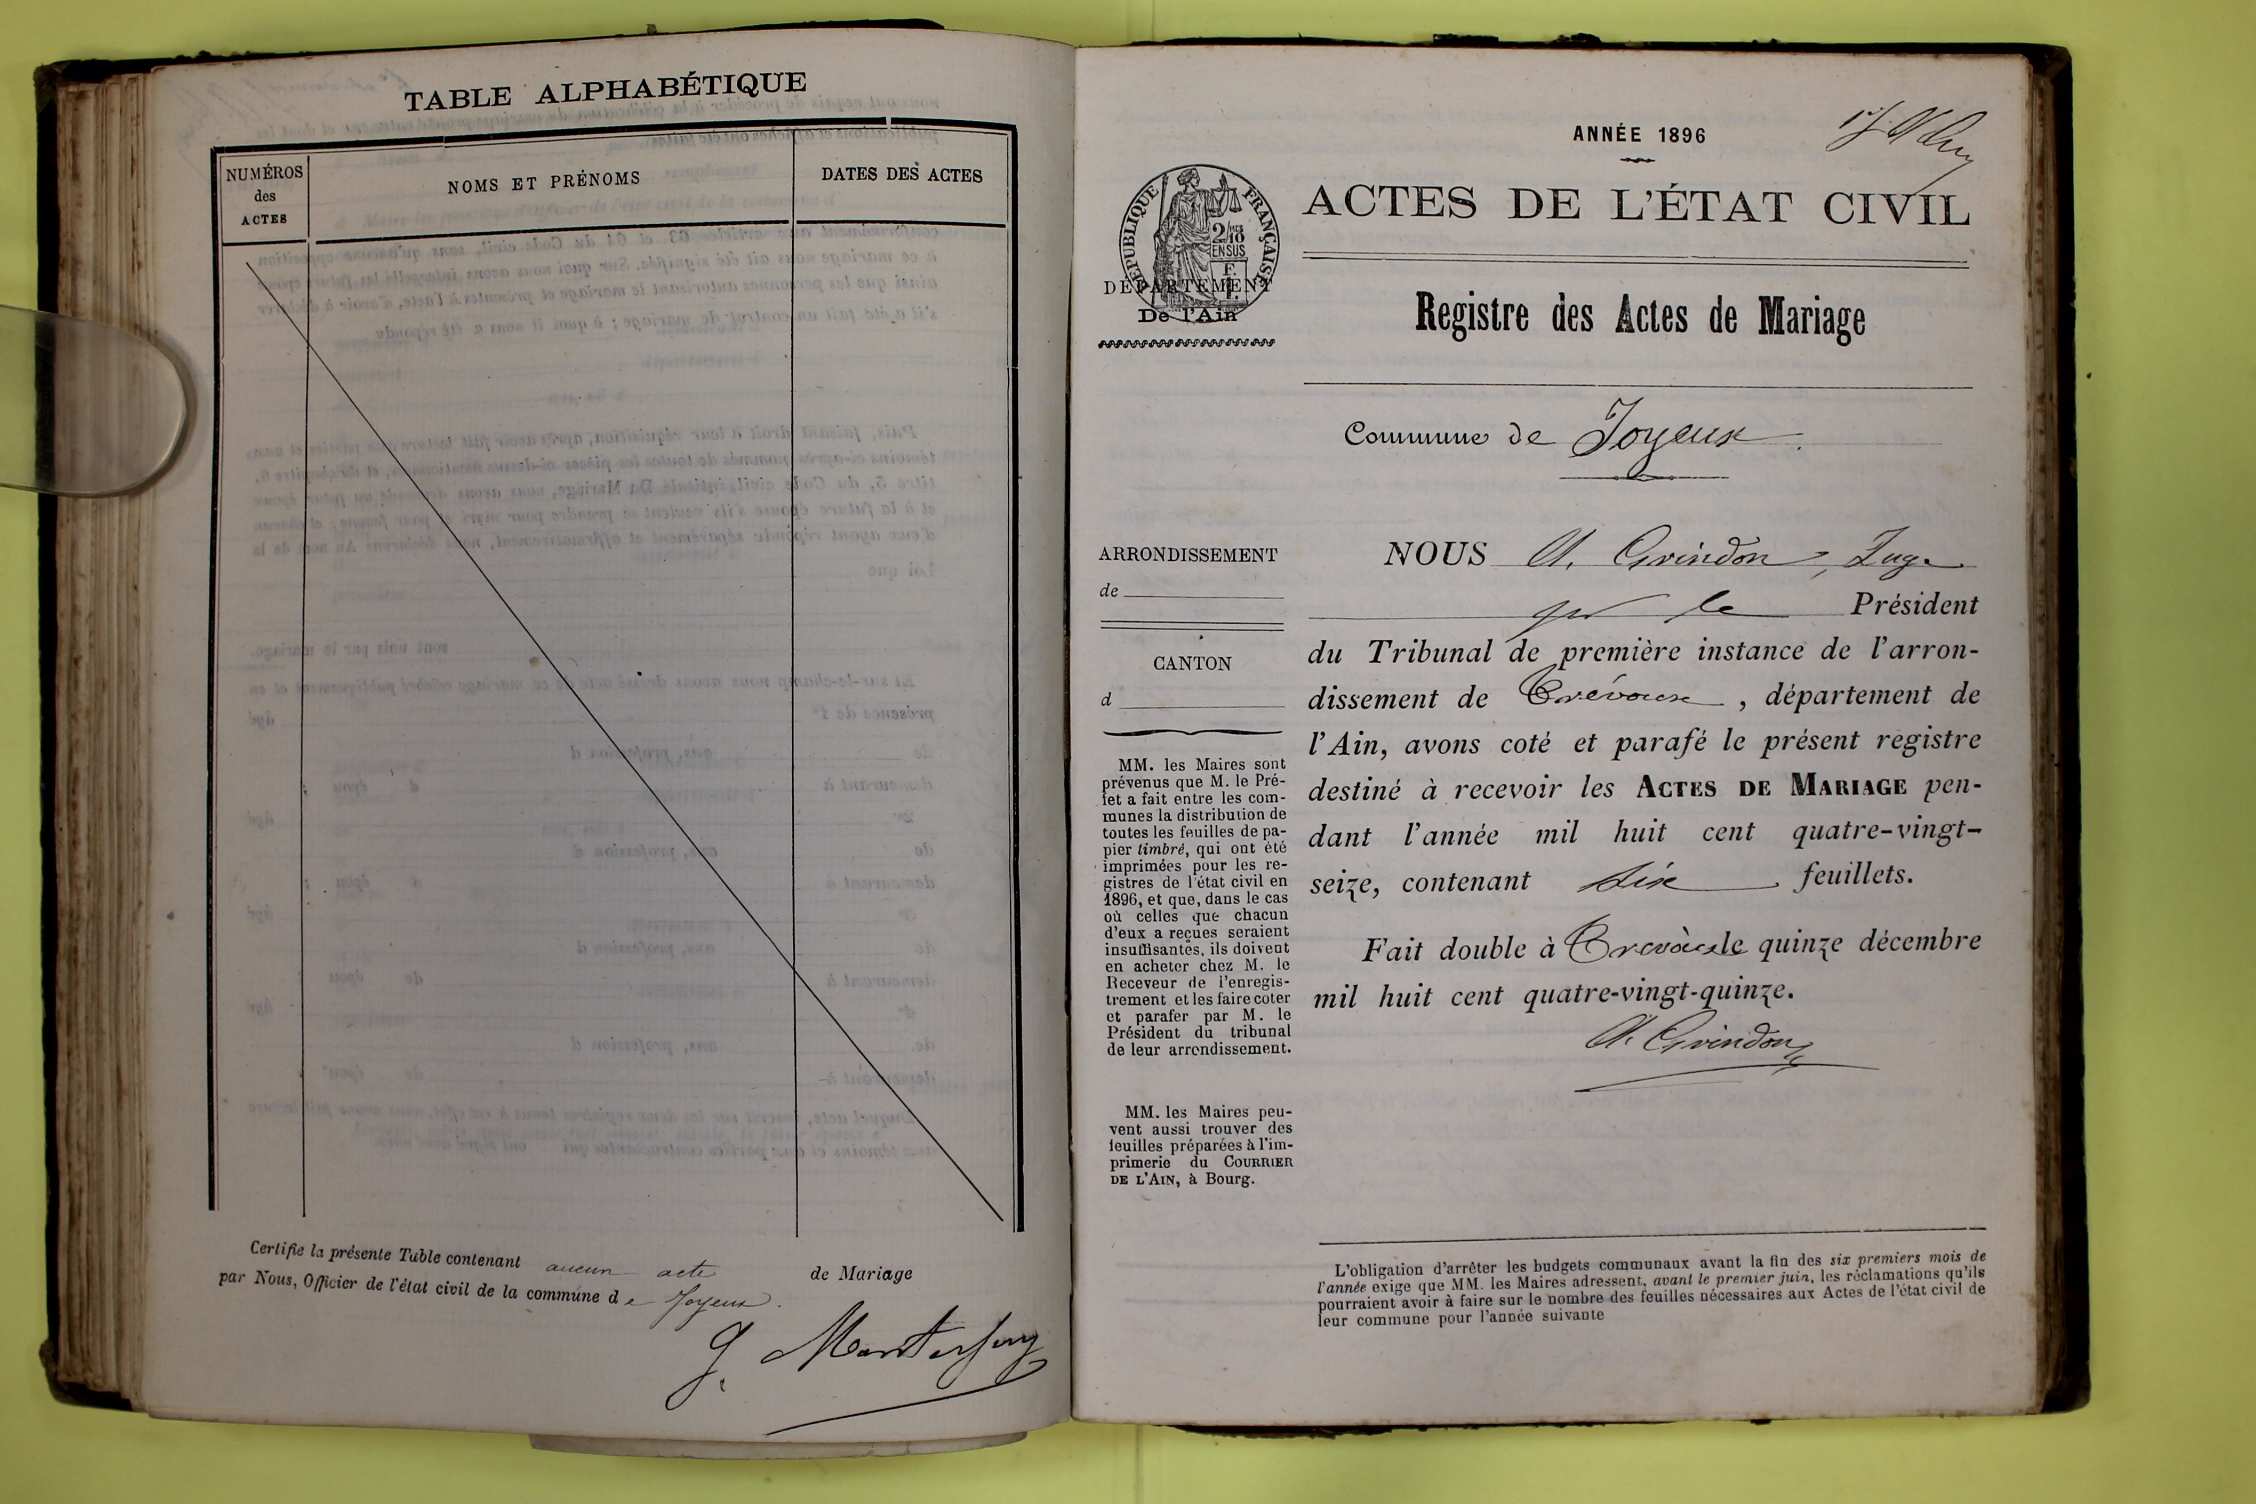 TABLE ALPHABÉTIQUE
NUMÉROS
des
ACTES
NOMS ET PRÉNOMS
DATES DES ACTES
Certifie la présente Table contenant aucun acte de Mariage
par Nous, Officier de l'état civil de la commune de Joyeux.
ANNÉE 1896
ACTES DE L'ÉTAT CIVIL
RÉPUBLIQUE FRANÇAISE
2/10
EN SUS
DÉPARTEMENT
De l'Ain
Registre des Actes de Mariage
Commune de Joyeux
ARRONDISSEMENT
de
CANTON
d
MM. les Maires sont
prévenus que M. le Pré-
fet a fait entre les com-
munes la distribution de
toutes les feuilles de pa-
pier timbré, qui ont été
imprimées pour les re-
gistres de l'état civil en
1896, et que, dans le cas
où celles que chacun
d'eux a reçues seraient
insuffisantes, ils doivent
en acheter chez M. le
Receveur de l'enregis-
trement et les faire coter
et parafer par M. le
Président du tribunal
de leur arrondissement.
MM. les Maires peu-
vent aussi trouver des
feuilles préparées à l'im-
primerie du COURRIER
DE L'AIN, à Bourg.
NOUS A. Grindon, Juge
pr le Président
du Tribunal de première instance de l'arron-
dissement de Trévoux, département de
l'Ain, avons coté et parafé le présent registre
destiné à recevoir les ACTES DE MARIAGE pen-
dant l'année mil huit cent quatre-vingt-
seize, contenant six feuillets.
Fait double à Trévoux le quinze décembre
mil huit cent quatre-vingt-quinze.
A. Grindon
L'obligation d'arrêter les budgets communaux avant la fin des six premiers mois de
l'année exige que MM. les Maires adressent, avant le premier juin, les réclamations qu'ils
pourraient avoir à faire sur le nombre des feuilles nécessaires aux Actes de l'état civil de
leur commune pour l'année suivante